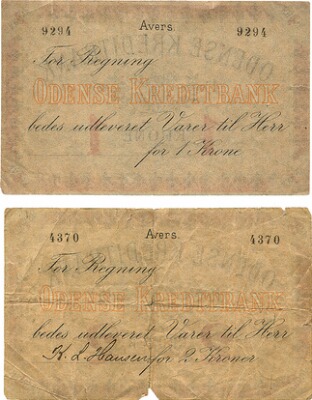 Avers.
9294 9294
For Regning
ODENSE KREDITBANK
bedes udleveret Varer til Herr
for 1 Krone
Avers.
4370 4370
For Regning
ODENSE KREDITBANK
bedes udleveret Varer til Herr
H. L. Hansen for 2 Kroner